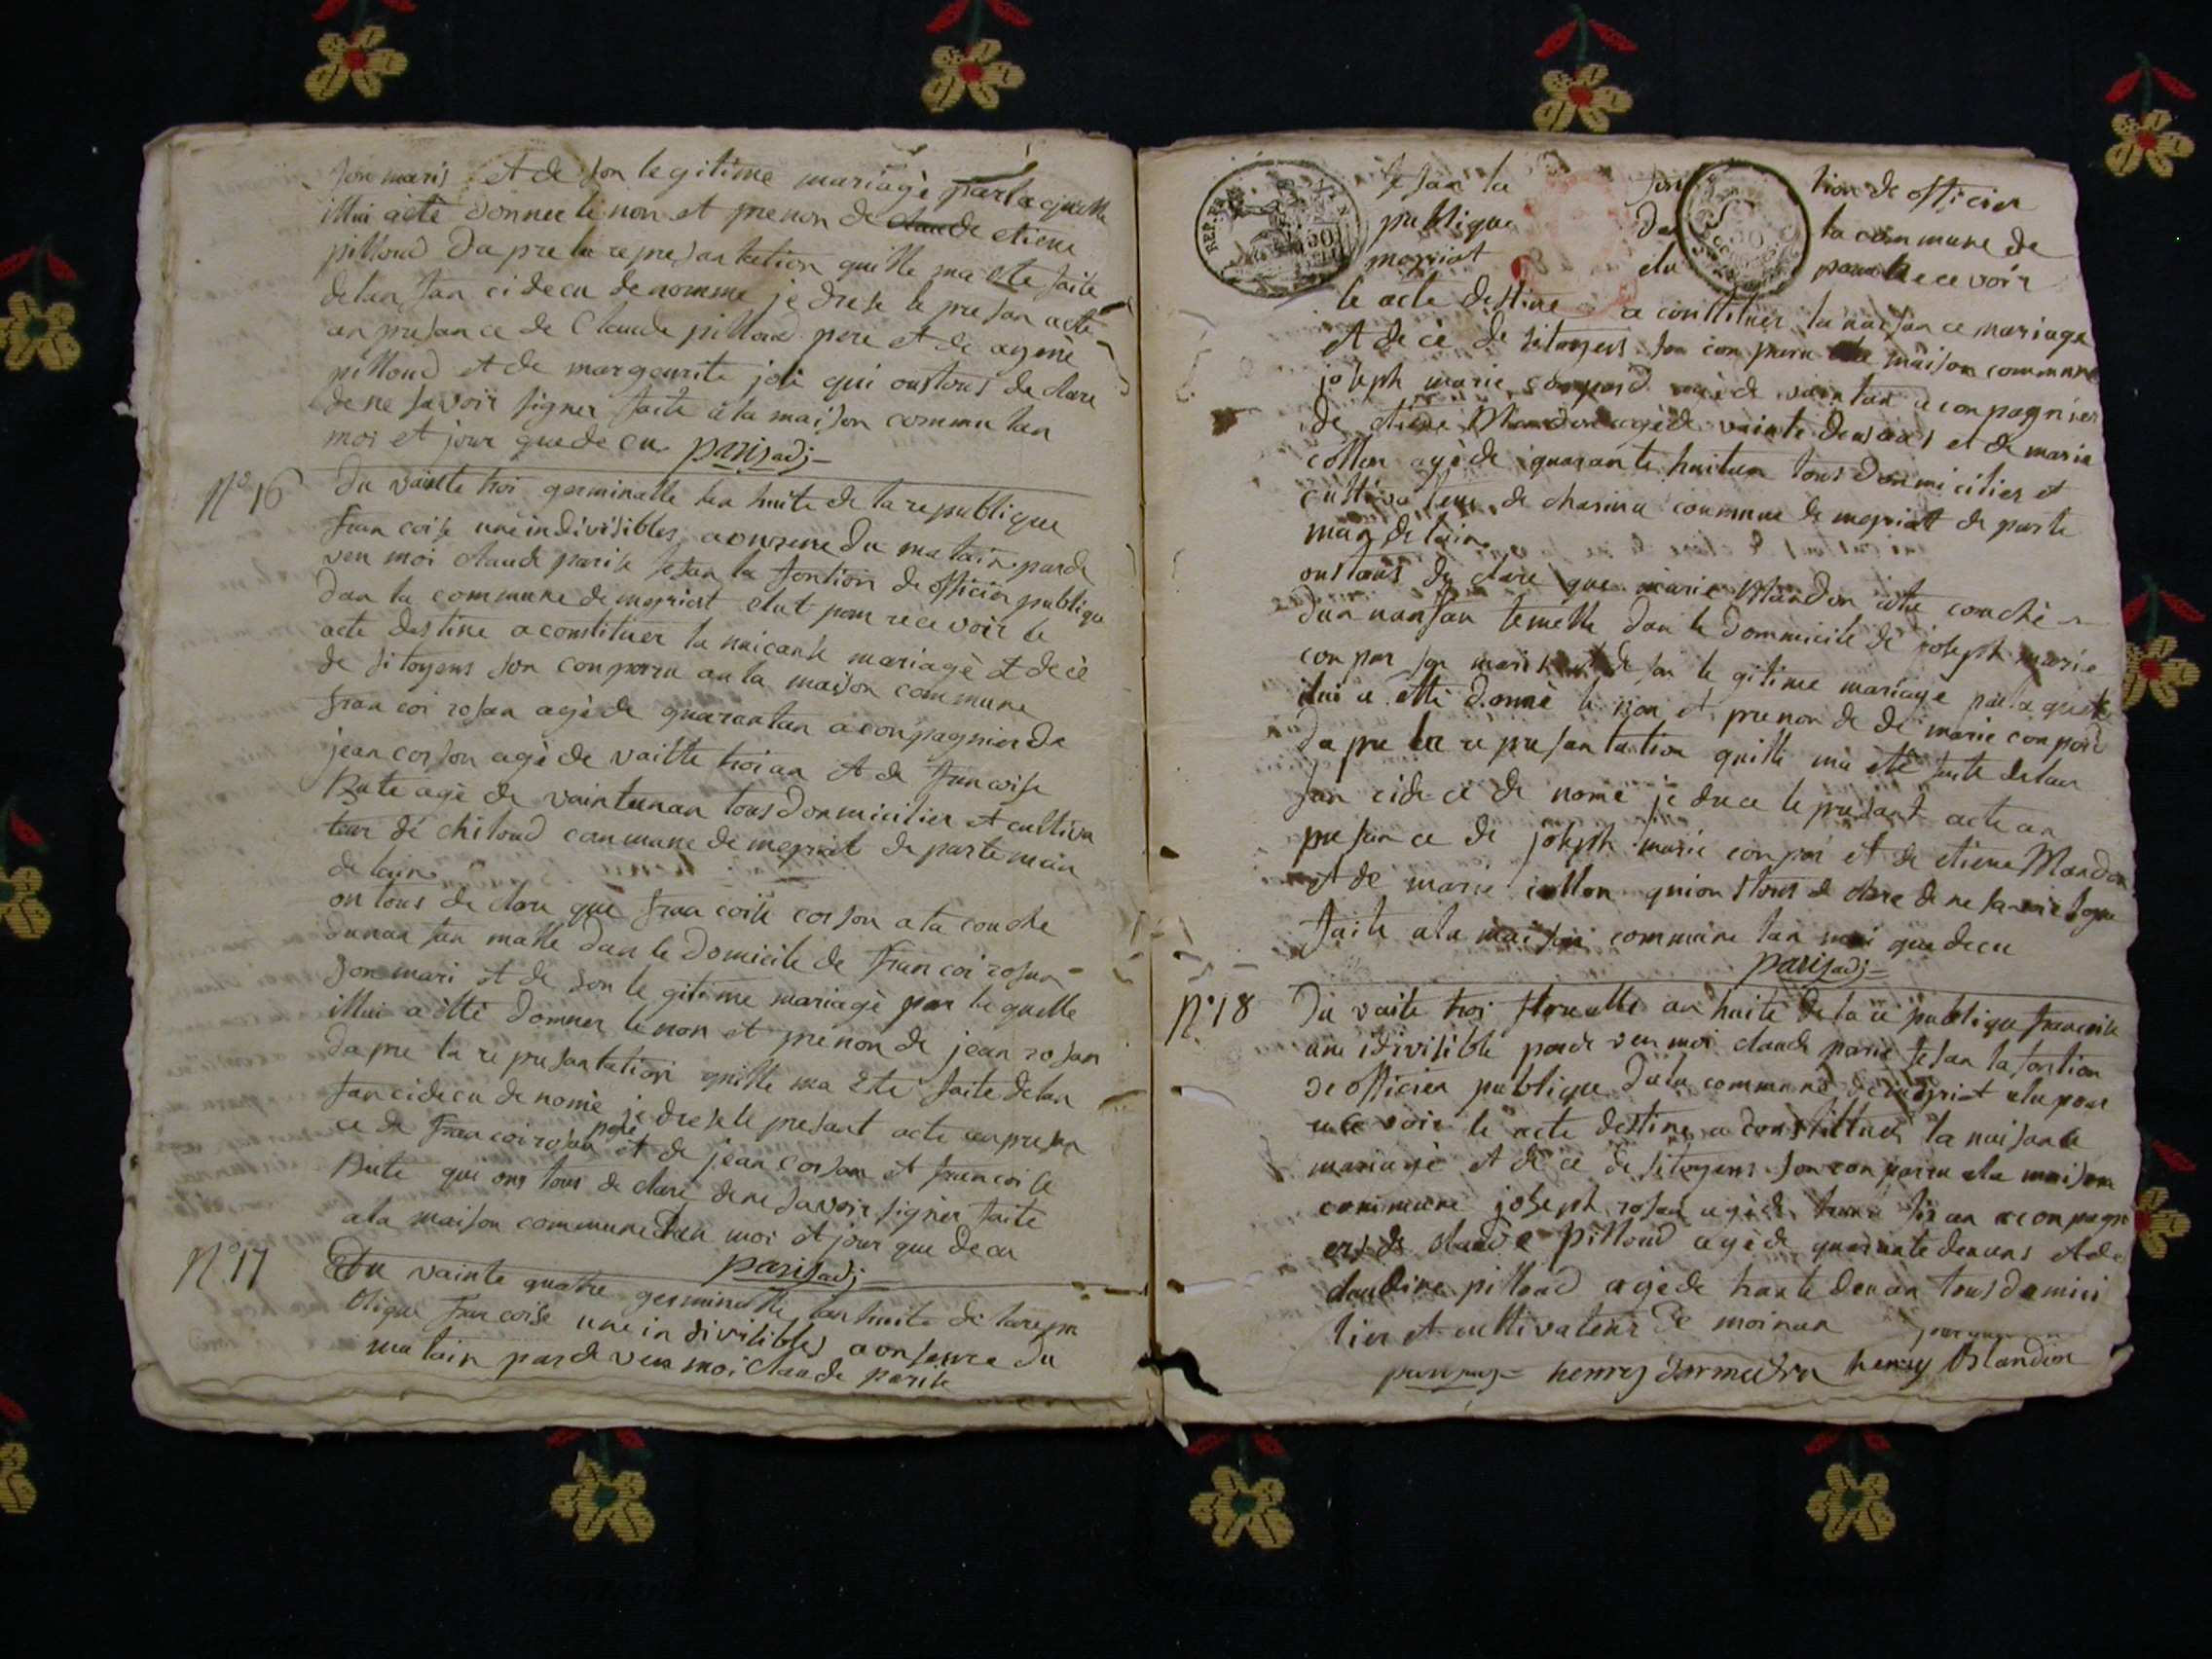 son maris et de son legitime mariagè par laquelle
illui aètè donner le non et prenon de claude etiene
pilloud dapre la represantation quille ma ete faite
delan fan ci decu denomme je drese le presan acte
an presance de Claude pilloud pere et de
pilloud et de margeurite joli qui oustous declare
de ne savoir signer faite a la maison commu lan
moi et jour que decu parisadj
N° 16 du vainte troi germinalle lan huite de la republique
francoise une indivisibles a onzeure du matain parde
ven moi claude parise fesan la fontion de officier publique
dan la commune de meyriat elut pour recevoir le
acte destine aconstituer la naicanse mariagè et decè
de sitoyens son conparru an la maison commune
francoi rosan agè de quarantan aconpagnier de
jean corson agè de vainte troi an et de francoise
Bute agè de vainteunan tous donmicilier et cultiva
teur de chiloud commune de meyriat departemain
de lain
on tous declare que francoise corson a ta couche
dunan fan malle dan le domicile de francoi rosan
son mari et de son legitime mariagè par laquelle
illui a ètte donner le non et prenon de jean rosan
dapre la represantation quille ma ète faite delan
fan cidecu denomè je drese le presant acte anpresan
ce de francoi rosan pere et de jean corson et francoise
Bute que ons tous declarè dene savoir signer faite
ala maison commune lan moi et jour que decu
parisadj
N° 17 Du vainte quatre germinalle lan huite de larepu
blique francoise une indivisibles a onseure du
matain pardeven moi claude parise
REP. FRA
fesan la fontion de officier
publique de la commune de
meyriat elu pour recevoir
le acte destine a constituer la naisance mariage
et decè de sitoyens son conparu maison commune
joseph marie conpord agè de vaintan aconpagnier
de etiene Blandon agè de vainte deusans et de marie
collon agè de quarante huitan tous donmicilier et
cultivateur de chasina commune de meyriat de parte
man de lain
oustous declare que marie Blandon ate couchè
dun nanfan femelle dan le dommicile de joseph marie
conpor son maris et de son legitime mariagè par laquelle
illui a ettè donnè le non et prenon de de marie conpord
dapre la represantation quille ma ètè faite delan
fan cidece de nomè je drece le presant acte an
presance de joseph marie conpor et de etiene Blandon
et de marie collon qui on tous declare de ne savoir signe
faite ala maison commune lan moi que decu
parisadj
N° 18 Du vainte troi floraelle an huite de la republique francoise
une idivisible pardeven moi claude parise fesan la fontion
de officier publique dela commune de meyriat elu pour
recevoir le acte destine a constittuer la naisance
mariagè et dece de sitoyens son conparru ala maison
commune joseph rosan agè de trante sis an aconpagni
ers de claude pilloud agè de quarante deuans et de
claudine pilloud agè de trante deuan tous domici
lier et cultivateur de moinan
henry darmedru henry Blandon